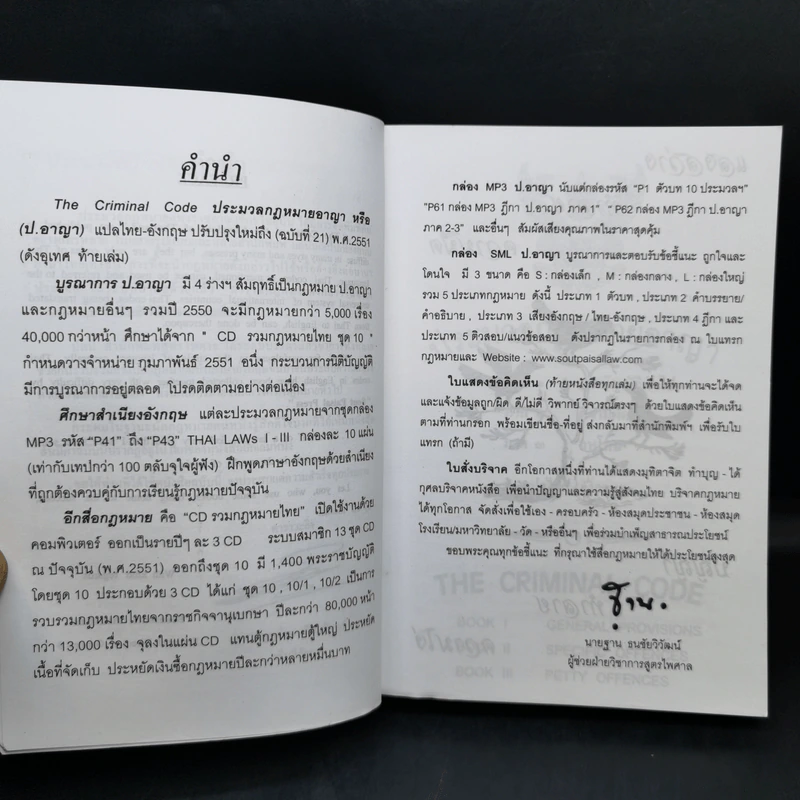 คำนำ
The Criminal Code ประมวลกฎหมายอาญา หรือ
(ป.อาญา) แปลไทย-อังกฤษ ปรับปรุงใหม่ถึง (ฉบับที่ 21) พ.ศ.2551
(ดังอุเทศ ท้ายเล่ม)
บูรณาการ ป.อาญา มี 4 ร่างฯ สัมฤทธิ์เป็นกฎหมาย ป.อาญา
และกฎหมายอื่นๆ รวมปี 2550 จะมีกฎหมายกว่า 5,000 เรื่อง
40,000 กว่าหน้า ศึกษาได้จาก " CD รวมกฎหมายไทย ชุด 10 "
กำหนดวางจำหน่าย กุมภาพันธ์ 2551 อนึ่ง กระบวนการนิติบัญญัติ
มีการบูรณาการอยู่ตลอด โปรดติดตามอย่างต่อเนื่อง
ศึกษาสำเนียงอังกฤษ แต่ละประมวลกฎหมายจากชุดกล่อง
MP3 รหัส "P41" ถึง "P43" THAI LAWs I - III กล่องละ 10 แผ่น
(เท่ากับเทปกว่า 100 ตลับจุใจผู้ฟัง) ฝึกพูดภาษาอังกฤษด้วยสำเนียง
ที่ถูกต้องควบคู่กับการเรียนรู้กฎหมายปัจจุบัน
อีกสื่อกฎหมาย คือ "CD รวมกฎหมายไทย" เปิดใช้งานด้วย
คอมพิวเตอร์ ออกเป็นรายปีๆ ละ 3 CD ระบบสมาชิก 13 ชุด CD
ณ ปัจจุบัน (พ.ศ.2551) ออกถึงชุด 10 มี 1,400 พระราชบัญญัติ
โดยชุด 10 ประกอบด้วย 3 CD ได้แก่ ชุด 10 , 10/1 , 10/2 เป็นการ
รวบรวมกฎหมายไทยจากราชกิจจานุเบกษา ปีละกว่า 80,000 หน้า
กว่า 13,000 เรื่อง จุลงในแผ่น CD แทนตู้กฎหมายตู้ใหญ่ ประหยัด
เนื้อที่จัดเก็บ ประหยัดเงินซื้อกฎหมายปีละกว่าหลายหมื่นบาท
กล่อง MP3 ป.อาญา นับแต่กล่องรหัส "P1 ตัวบท 10 ประมวลฯ"
"P61 กล่อง MP3 ฎีกา ป.อาญา ภาค 1" "P62 กล่อง MP3 ฎีกา ป.อาญา
ภาค 2-3" และอื่นๆ สัมผัสเสียงคุณภาพในราคาสุดคุ้ม
กล่อง SML ป.อาญา บูรณาการและตอบรับข้อชี้แนะ ถูกใจและ
โดนใจ มี 3 ขนาด คือ S : กล่องเล็ก , M : กล่องกลาง , L : กล่องใหญ่
รวม 5 ประเภทกฎหมาย ดังนี้ ประเภท 1 ตัวบท , ประเภท 2 คำบรรยาย/
คำอธิบาย , ประเภท 3 เสียงอังกฤษ / ไทย-อังกฤษ , ประเภท 4 ฎีกา และ
ประเภท 5 ติวสอบ/แนวข้อสอบ ดังปรากฏในรายการกล่อง ณ ใบแทรก
กฎหมายและ Website : www.soutpaisallaw.com
ใบแสดงข้อคิดเห็น (ท้ายหนังสือทุกเล่ม) เพื่อให้ทุกท่านจะได้จด
และแจ้งข้อมูลถูก/ผิด ดี/ไม่ดี วิพากย์ วิจารณ์ตรงๆ ด้วยใบแสดงข้อคิดเห็น
ตามที่ท่านกรอก พร้อมเขียนชื่อ-ที่อยู่ ส่งกลับมาที่สำนักพิมพ์ฯ เพื่อรับใบ
แทรก (ถ้ามี)
ใบสั่งบริจาค อีกโอกาสหนึ่งที่ท่านได้แสดงมุทิตาจิต ทำบุญ - ได้
กุศลบริจาคหนังสือ เพื่อนำปัญญาและความรู้สู่สังคมไทย บริจาคกฎหมาย
ได้ทุกโอกาส จัดสั่งเพื่อใช้เอง - ครอบครัว - ห้องสมุดประชาชน - ห้องสมุด
โรงเรียน/มหาวิทยาลัย - วัด - หรืออื่นๆ เพื่อร่วมบำเพ็ญสาธารณประโยชน์
ขอบพระคุณทุกข้อชี้แนะ ที่กรุณาใช้สื่อกฎหมายให้ได้ประโยชน์สูงสุด
นายฐาน ธนชัยวิวัฒน์
ผู้ช่วยฝ่ายวิชาการสูตรไพศาล